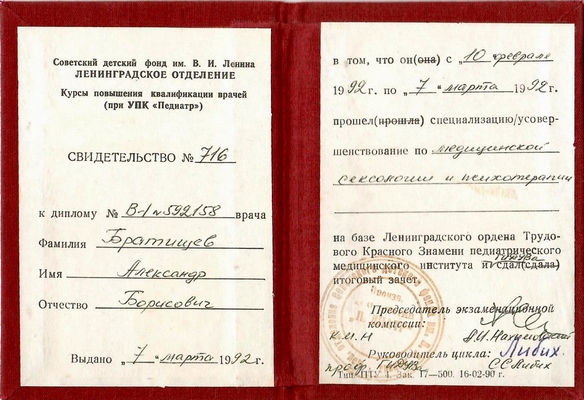 Советский детский фонд им. В. И. Ленина
ЛЕНИНГРАДСКОЕ ОТДЕЛЕНИЕ
Курсы повышения квалификации врачей
(при УПК «Педиатр»)
СВИДЕТЕЛЬСТВО № 716
к диплому № В-I №592158 врача
Фамилия Братищев
Имя Александр
Отчество Борисович
Выдано „7“ марта 1992г.
в том, что он(она) с „10 февраля
1992 г. по „7“ марта 1992 г.
прошел(прошла) специализацию/усовер-
шенствование по медицинской
сексологии и психотерапии
на базе Ленинградского ордена Трудо-
вого Красного Знамени педиатрического
медицинского института и ГИДУВа сдал(сдала)
итоговый зачет.
Председатель экзаменационной
комиссии:
к.м.н
Руководитель цикла: Либих
проф. ГИДУВа С.С.Либих
Тип. ПТУ 4. Зак. 17—500. 16-02-90 г.